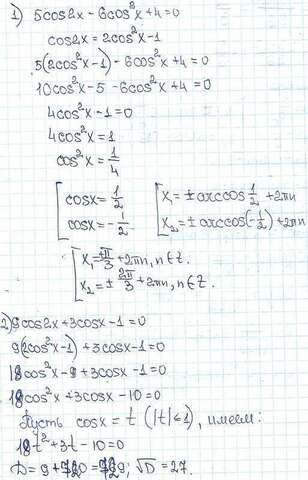 1) 5cos2x - 6cos²x + 4 = 0
cos2x = 2cos²x - 1
5(2cos²x - 1) - 6cos²x + 4 = 0
10cos²x - 5 - 6cos²x + 4 = 0
4cos²x - 1 = 0
4cos²x = 1
cos²x = 1/4
[ cosx = 1/2 [ x₁ = ± arccos 1/2 + 2πn
cosx = - 1/2 x₂ = ± arccos(-1/2) + 2πn
[ x₁ = ± π/3 + 2πn, n∈Z.
x₂ = ± 2π/3 + 2πn, n∈Z.
2) 9cos2x + 3cosx - 1 = 0
9(2cos²x - 1) + 3cosx - 1 = 0
18cos²x - 9 + 3cosx - 1 = 0
18cos²x + 3cosx - 10 = 0
Пусть cosx = t (|t| ≤ 1), имеем:
18t² + 3t - 10 = 0
D = 9 + 720 = 729; √D = 27.